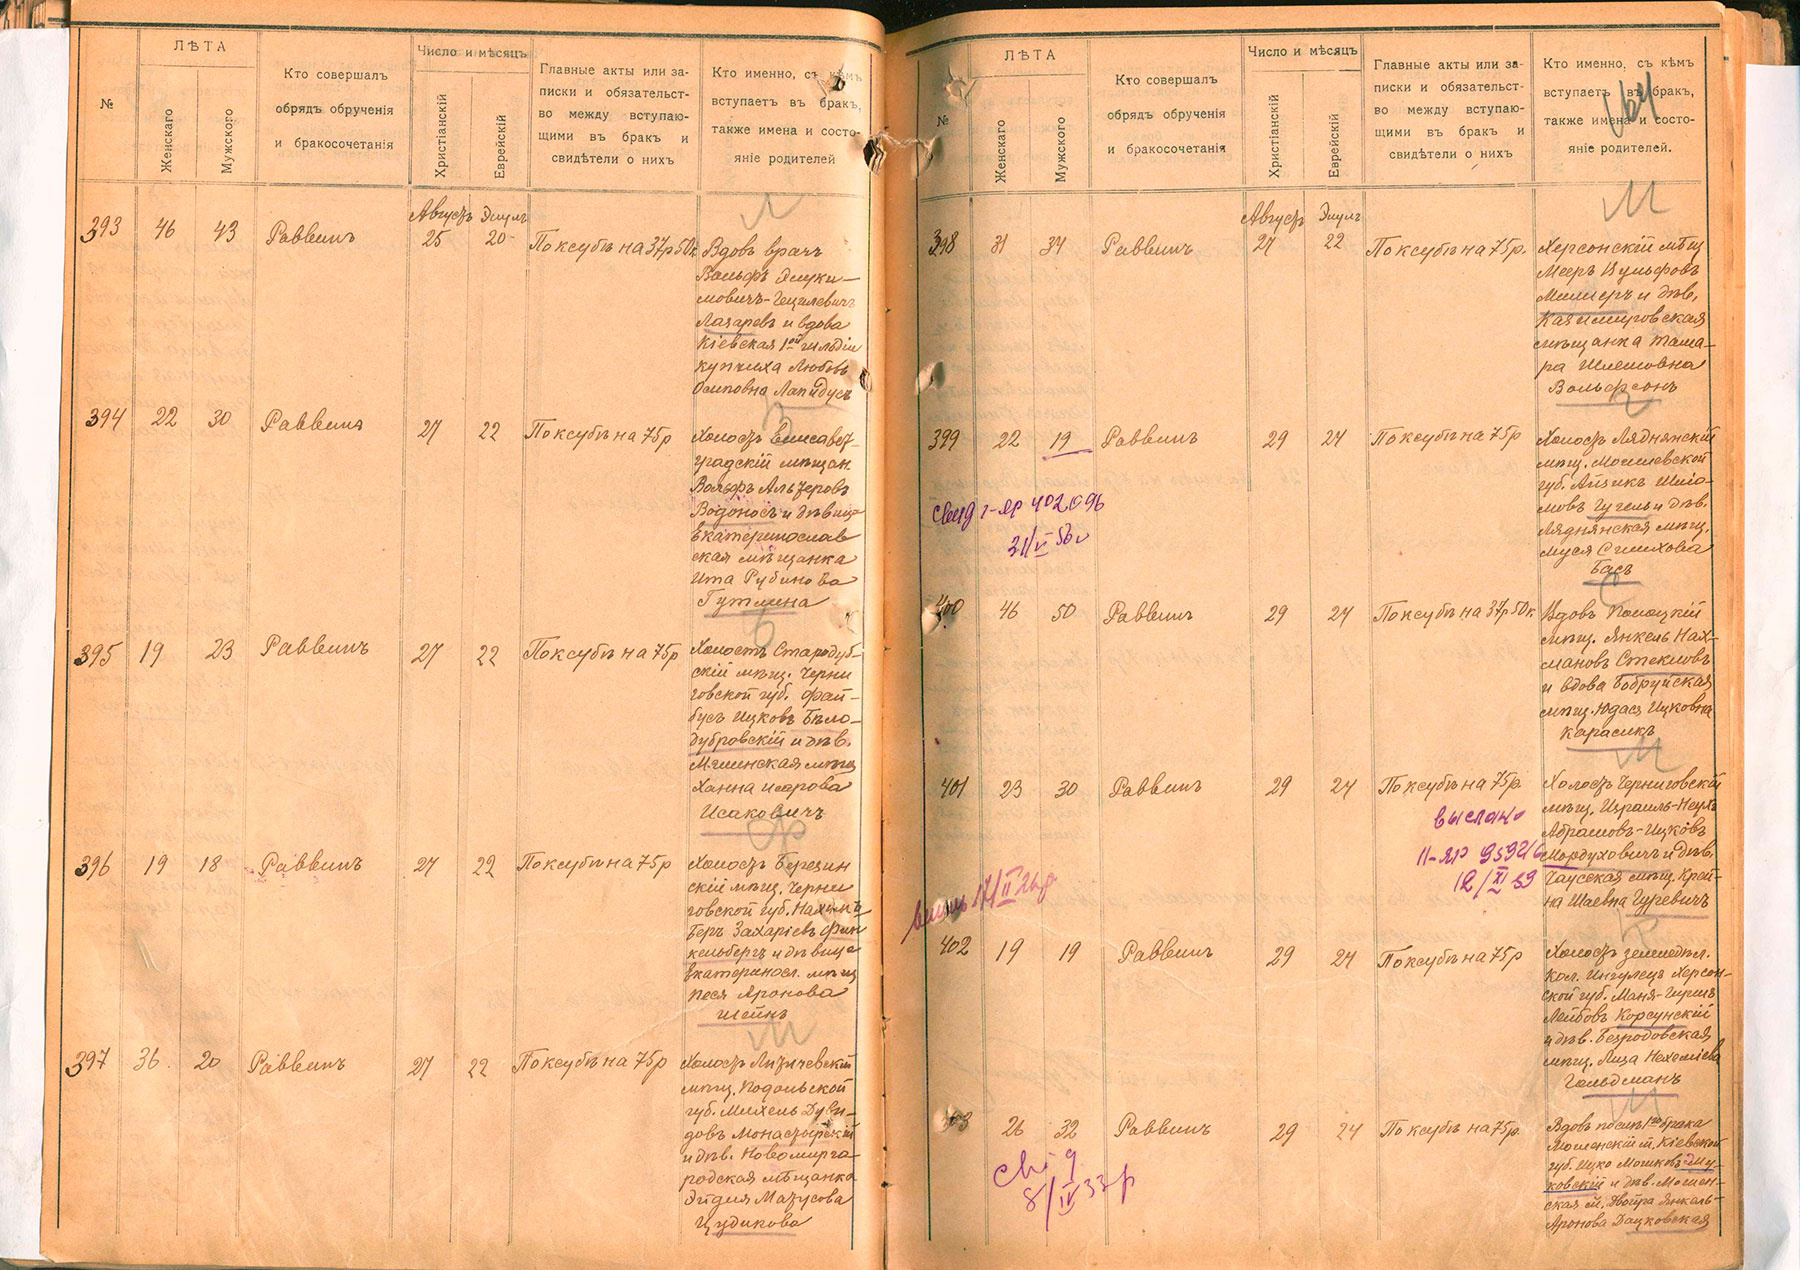 №
ЛѢТА
Женскаго
Мужского
Кто совершалъ
обрядъ обрученія
и бракосочетанія
Число и мѣсяцъ
Христіанскій
Еврейскій
Главные акты или за-
писки и обязательст-
во между вступаю-
щими въ бракъ и
свидѣтели о нихъ
Кто именно, съ кѣмъ
вступаетъ въ бракъ,
также имена и состо-
яніе родителей
393 46 43 Раввинъ Августъ 25 Элулъ 20 По ксубѣ на 37р 50к
Вдовъ врачъ
Вольфъ
Лазаревъ и вдова
Кіевская 1ой гильдіи
купчиха Любовь
Осиповна Лапидусъ
394 22 30 Раввинъ 27 22 По ксубѣ на 75р
Холостъ Елисавет-
градскій мѣщан
Вольфъ Альтеровъ
Водоносъ и дѣвица
Екатеринослав
ская мѣщанка
Ита Рубинова
Гутлина
395 19 23 Раввинъ 27 22 По ксубѣ на 75р
Холостъ Стародуб-
скій мѣщ. Черни
говской губ. Фай-
бусъ Ицковъ Бѣло-
дубровскій и дѣв.
Мглинская мѣщ
Ханна
Исаковичъ
396 19 18 Раввинъ 27 22 По ксубѣ на 75р
Холостъ Березин
скій мѣщ. Черни
говской губ. Нахимъ
Беръ Захаріевъ Фин
кельбергъ и дѣвица
Екатериносл. мѣщ
Песя Аронова
Шейнъ
397 36 20 Раввинъ 27 22 По ксубѣ на 75р
Холостъ Литичевскій
мѣщ. Подольской
губ. Михель Дуви-
довъ Монастырскій
и дѣв. Новомирго-
родская мѣщанка
Эйдия
Цудикова
№
ЛѢТА
Женскаго
Мужского
Кто совершалъ
обрядъ обрученія
и бракосочетанія
Число и мѣсяцъ
Христіанскій
Еврейскій
Главные акты или за-
писки и обязательст-
во между вступаю-
щими въ бракъ и
свидѣтели о нихъ
Кто именно, съ кѣмъ
вступаетъ въ бракъ,
также имена и состо-
яніе родителей.
164
398 31 34 Раввинъ Августъ 27 Элулъ 22 По ксубѣ на 75р.
Херсонскій мѣщ
Мееръ Вульфовъ
Миллеръ и дѣв.
мѣщанка Тама-
ра Шлемовна
Вольфсонъ
399 22 19 Раввинъ 29 24 По ксубѣ на 75р
Холостъ Ляднянскій
мѣщ. Могилевской
губ. Айзикъ Шло-
мовъ Гугель и дѣв.
Ляднянская мѣщ.
Муся Симхова
Басъ
I-яр 402096
400 46 50 Раввинъ 29 24 По ксубѣ на 37р 50к
Вдовъ Полоцкій
мѣщ. Янкель Нах-
мановъ Стекловъ
и вдова Бобруйская
мѣщ. Юдася Ицковна
Карасикъ
401 23 30 Раввинъ 29 24 По ксубѣ на 75р.
Холостъ Черниговскій
мѣщ. Израиль-Неухъ
Абрамовъ-Ицковъ
Мордуховичъ и дѣв.
Чаусская мѣщ. Крей-
на Шаевна Гуревичъ
выслано
II-яр 959216
12/XI 59
17/II 26р
402 19 19 Раввинъ 29 24 По ксубѣ на 75р
Холостъ земледѣл.
кол. Ингулецъ Херсон-
ской губ. Маня-Гиршъ
Лейбовъ Корсунскій
и дѣв. Безродовская
мѣщ. Лиза Нехеміева
Гольдманъ
403 26 32 Раввинъ 29 24 По ксубѣ на 75р.
Вдовъ послѣ 1го брака
Мошенскій м. Кіевской
губ. Ицко Мошковъ
и дѣв. Мошен-
ская м. Двойра Янкель-
Аронова Дацковская
8/IV 33р